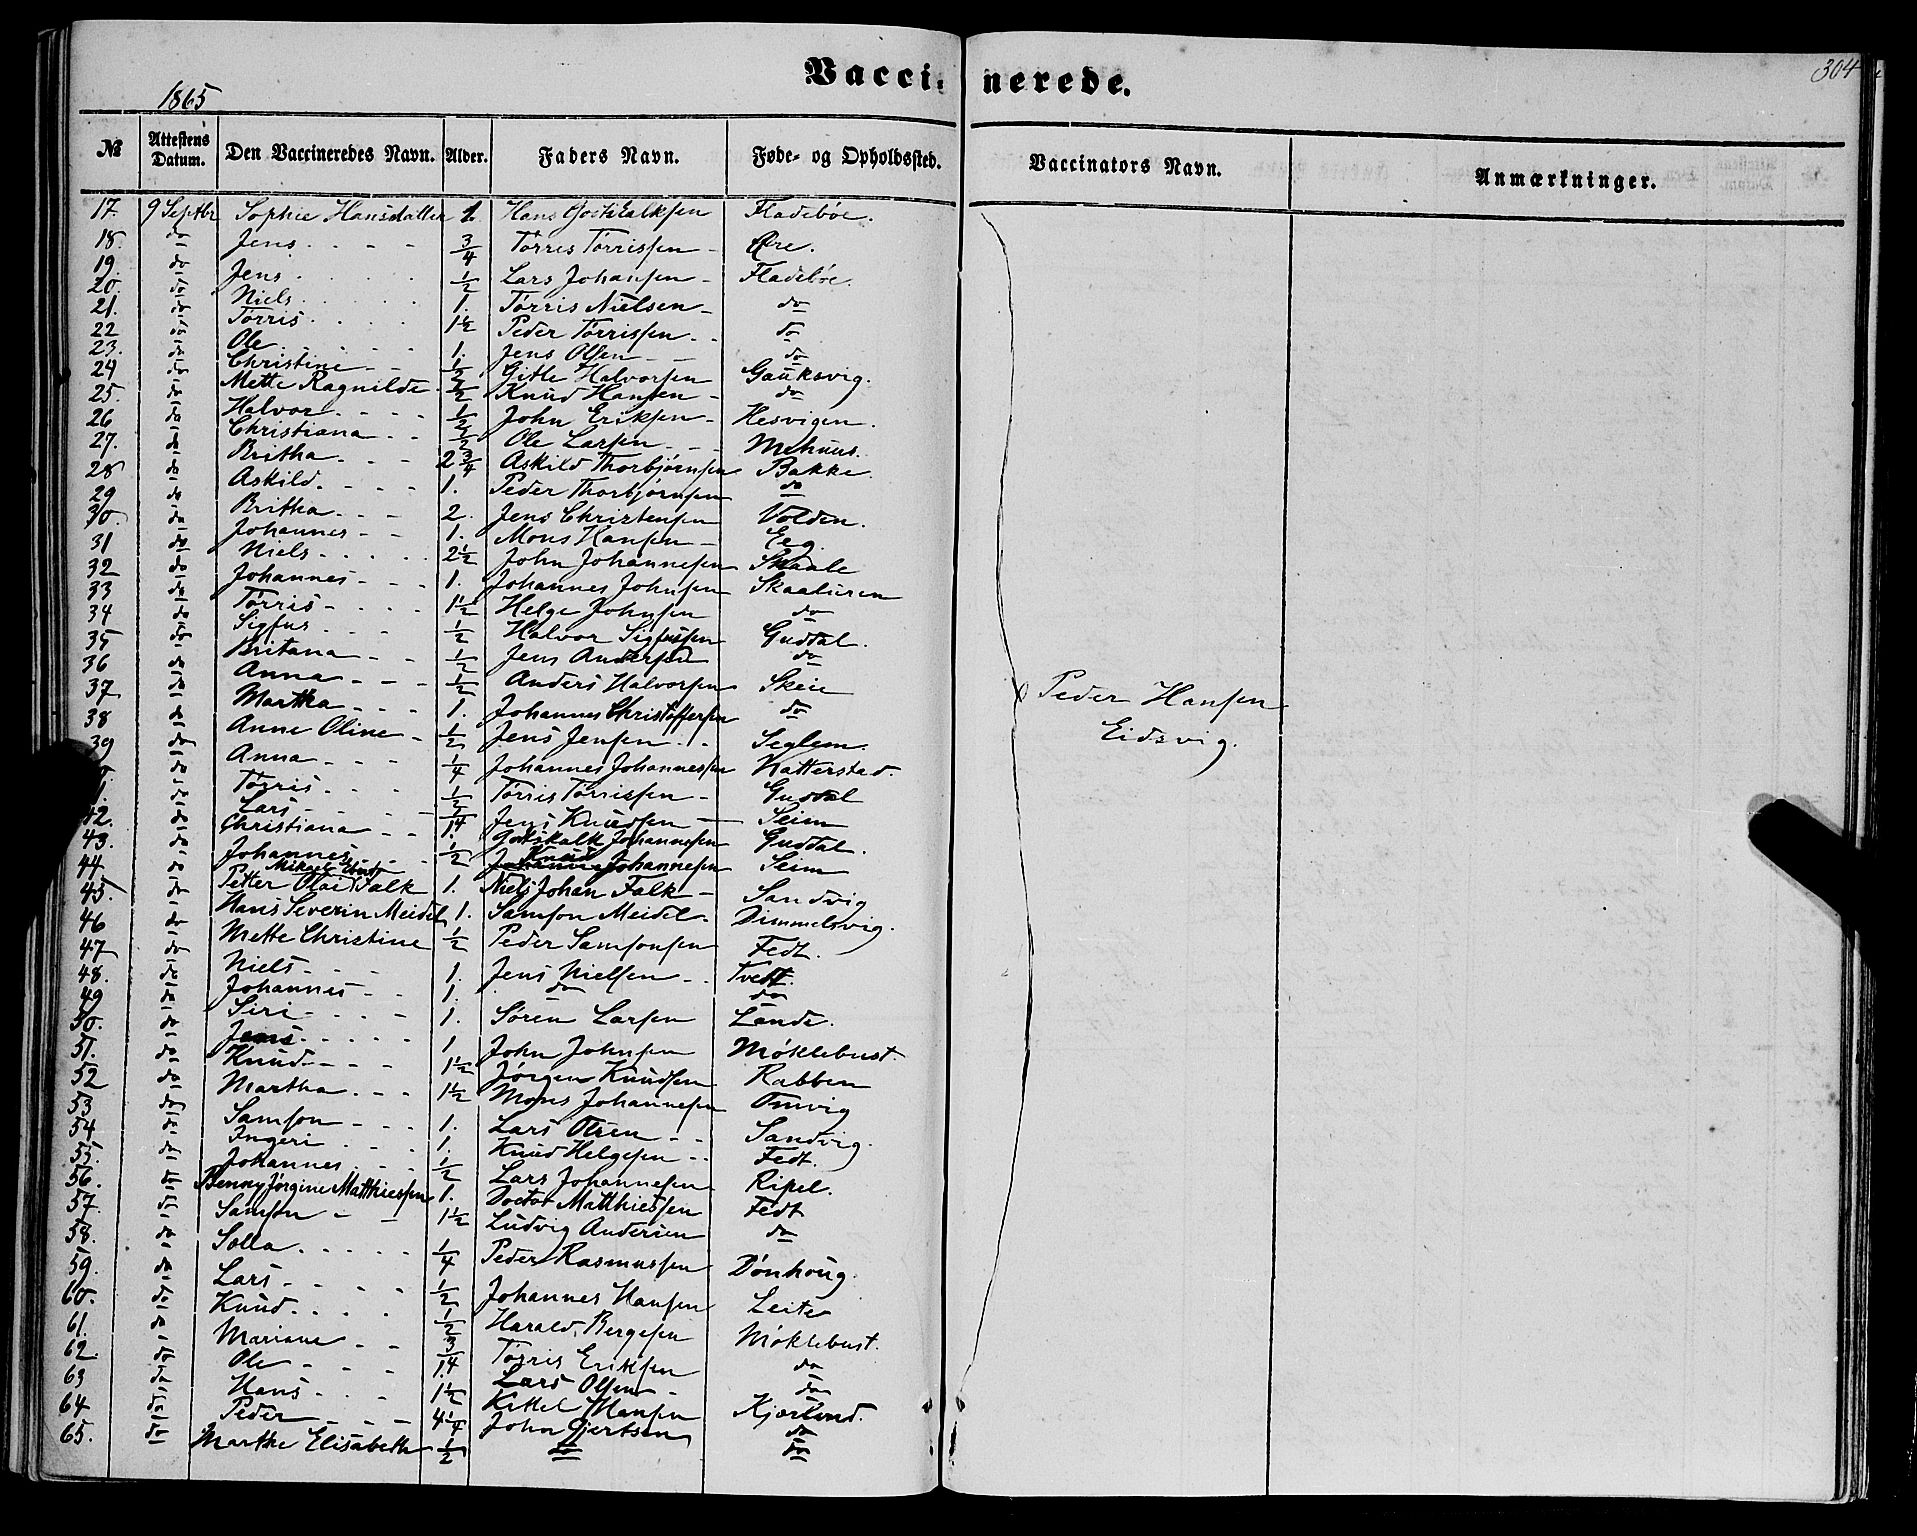 Vaccinerede.
304
1865
№ Attestens Datum. Den Vaccineredes Navn. Alder. Faders Navn. Føde- og Opholdssted. Vaccinators Navn. Anmærkninger.
17. 9 Septbr Sophie Hansdatter 1. Hans Godtskalksen Fladebøe.
18. do Jens 3/4 Tørres Tørrissen Øre.
19 do Jens 1/2 Lars Johansen Fladebøe.
20. do Niels 1. Tørris Nielsen do
21. do Tørris 1 1/2 Peder Tørrissen do
22 do Ole 1. Jens Olsen do
23. do Christine 1/2 Gitle Halvorsen Gauksvig.
24 do Mette Ragnilde 1/2 Knud Hansen do
25. do Halvor 1/2 John Eriksen Hesvigen.
26 do Christiana 1/2 Ole Larsen Mehuus.
27. do Britha 2 3/4 Askild Thorbjørnsen Bakke.
28 do Askild. 1. Peder Thorbjørnsen do
29 do Britha 2. Jens Christensen Volden.
30. do Johannes 1. Mons Hansen Eeg.
31 do Niels 2 1/2 John Johannesen Skaale
32 do Johannes 1. Johannes Johnsen Skaaluren
33 do Tørris 1 1/2 Helge Johnsen do
34 do Sigfus 1/2 Halvor Sigfusen Guddal.
35 do Britana 1/2 Jens Andersen do
36 do Anna 1/2 Anders Halvorsen Skeie
37 do Martha 1. Johannes Christoffersen do
38 do Anne Oline 1/2 Jens Jensen Seglem.
39 do Anna 1/4 Johannes Johannessen Hatterstad.
do Tørris 1/2 Tørris Tørrissen Guddal
do Lars 1/4 Jens Knudsen Seim
42. do Christiana 1. Godtskalk Johannesen Guddal.
43. do Johannes 1/2 Knud Johannesen Seim
44. do Petter Olai Falk 1. Niels Johan Falk Sandvig
45. do Hans Severin Meidel 1. Samson Meidel Dimmelsvig.
46 do Mette Christine 1/2 Peder Samsonsen Fedt.
47 do Niels 1. Jens Nielsen Tvedt.
48. do Johannes 1. do do
49 do Siri 1. Søren Larsen Lande.
50. do Jens 1 John Johnsen Møklebust
51. do Knud 1 1/2 Jørgen Knudsen Rabben
52 do Martha 1 1/2 Mons Johannesen Omvig
53 do Samson 1. Lars Olsen Sandvig.
54 do Ingeri 1. Knud Helgesen Fedt.
55. do Johannes 1/2 Lars Johannesen Ripel.
56. do Benny Jørgine Matthiessen 1. Doctor Matthiessen Fedt
57. do Samson 1 1/2 Ludvig Andersen do
58. do Solla 1/4 Peder Rasmussen Dønhoug.
59. do Lars 1/2 Johannes Hansen Leite
60. do Knud 1/2 Harald Bergesen Møklebust.
61. do Mariane 3/4 Tørris Eriksen do
62. do Ole 1. Lars Olsen do
63 do Hans 1 1/2 Kittel Hansen Kjærland.
64 do Peder 4 1/4 John Gjertsen do
65. do Marthe Elisabeth 1/2 do do
Peder Hansen
Eidsvig.